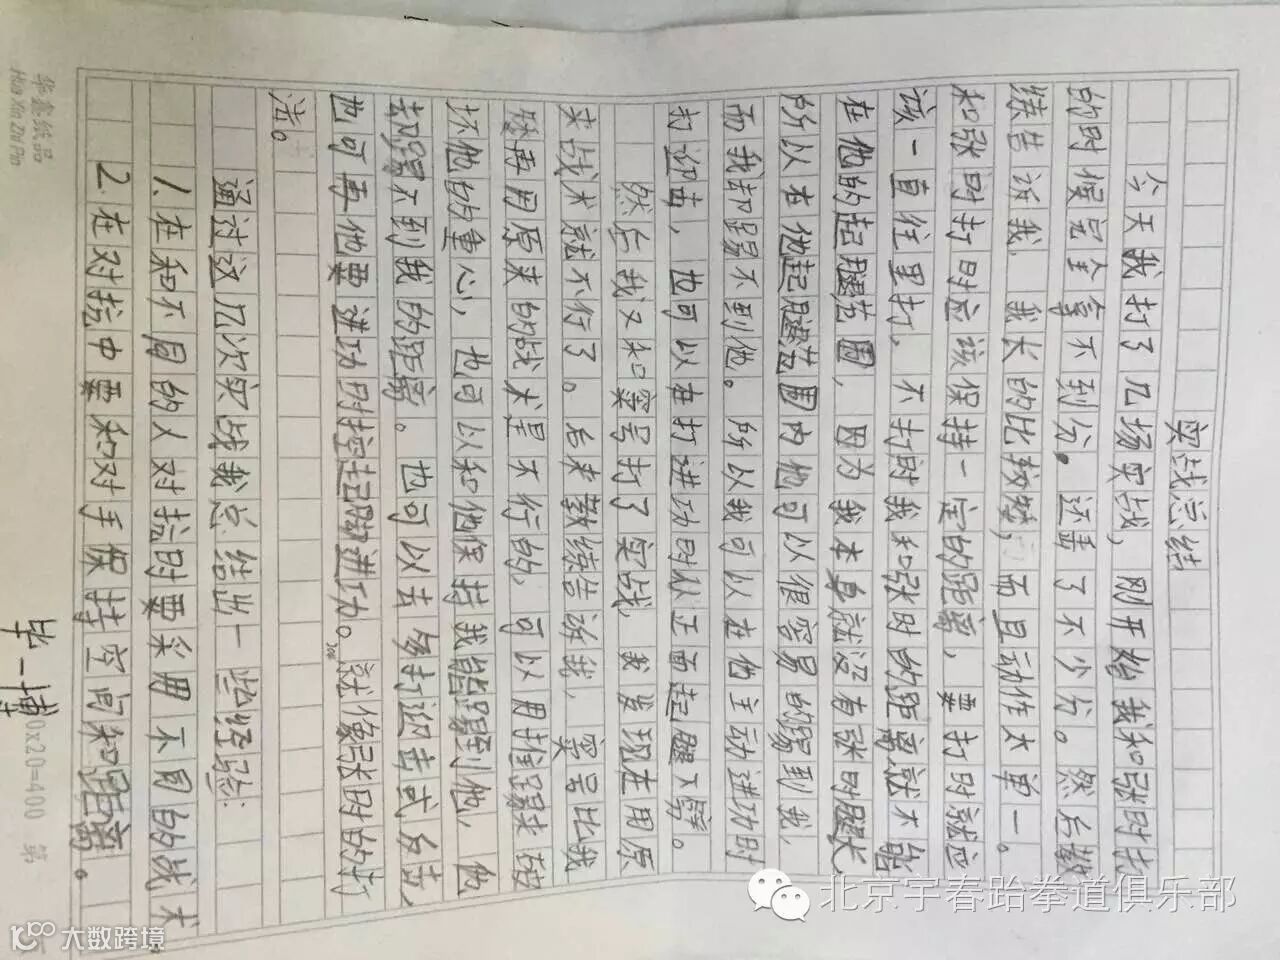 实战总结
今天我打了几场实战，刚开始我和张时打
的时候完全拿不到分。还丢了不少分。然后教
练告诉我，我长的比较矮，而且动作太单一。
和张时打时应该保持一定的距离，要打时就应
该一直往里打。不打时我和张时的距离就不能
在他的起腿范围，因为我本身就没有张时腿长，
所以在他起腿范围内他可以很容易的踢到我，
而我却踢不到他。所以我可以在他主动进功时
打迎击，也可以在打进功时从正面起腿下劈。
然后我又和寞号打了实战，我发现在用原
来战术就不行了。后来教练告诉我，寞号比我
矮再用原来的战术是不行的，可以用推踢来破
坏他的重心，也可以和他保持我能踢到他，他
却踢不到我的距离。也可以去多打迎击或后击，
也可再他要进功时控起脚进功。就像张时的打
法。
通过这几次实战我总结出一些经验：
1.在和不同的人对抗时要采用不同的战术。
2.在对抗中要和对手保持空间和距离。
毕一博
0x20=400 第
华鑫纸品
Hua Xin Zhi Pin
北京宇春跆拳道俱乐部
大数跨境